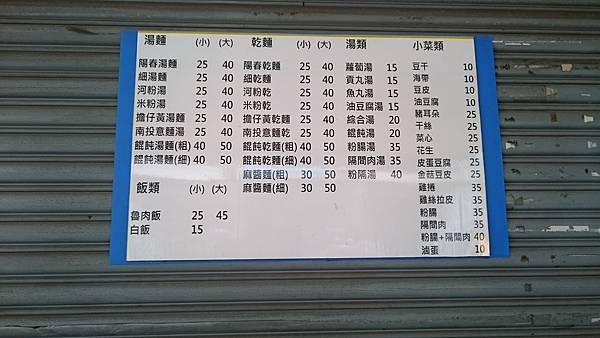 湯麵 (小) (大)
陽春湯麵 25 40
細湯麵 25 40
河粉湯 25 40
米粉湯 25 40
擔仔黃湯麵 25 40
南投意麵湯 25 40
餛飩湯麵(粗) 40 50
餛飩湯麵(細) 40 50
飯類 (小) (大)
魯肉飯 25 45
白飯 15
乾麵 (小) (大)
陽春乾麵 25 40
細乾麵 25 40
河粉乾 25 40
米粉乾 25 40
擔仔黃乾麵 25 40
南投意麵乾 25 40
餛飩乾麵(粗) 40 50
餛飩乾麵(細) 40 50
麻醬麵(粗) 30 50
麻醬麵(細) 30 50
湯類
蘿蔔湯 15
貢丸湯 15
魚丸湯 15
油豆腐湯 15
綜合湯 20
餛飩湯 20
粉腸湯 35
隔間肉湯 35
粉隔湯 40
小菜類
豆干 10
海帶 10
豆皮 10
油豆腐 10
豬耳朵 25
干絲 25
菜心 25
花生 25
皮蛋豆腐 25
金菇豆皮 25
雞捲 35
雞絲拉皮 35
粉腸 35
隔間肉 35
粉腸+隔間肉 40
滷蛋 10